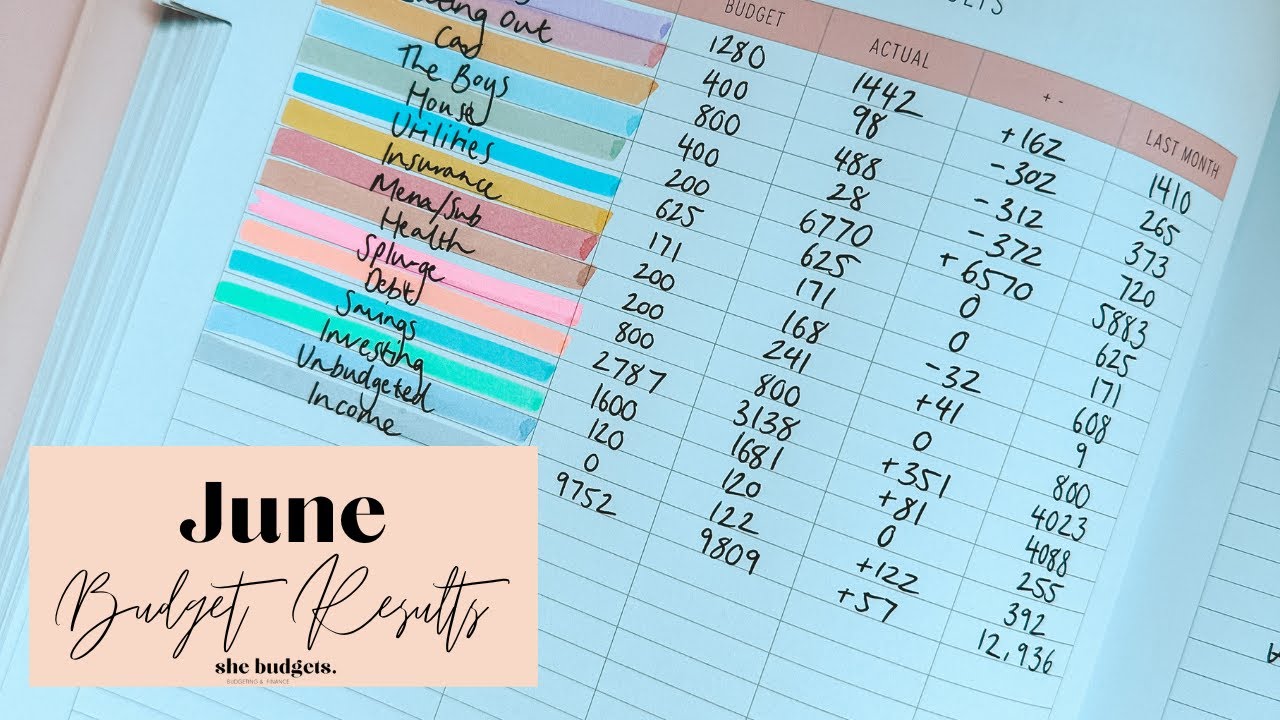 BUDGET ACTUAL + - LAST MONTH
1280 1442 +162 1410
Eating Out 400 98 -302 265
Car 800 488 -312 373
The Boys 400 28 -372 720
House 200 6770 +6570 5883
Utilities 625 625 0 625
Insurance 171 171 0 171
Mena/Sub 200 168 -32 608
Health 200 241 +41 9
Splurge 800 800 0 800
Debt 2787 3138 +351 4023
Savings 1600 1681 +81 4088
Investing 120 120 0 255
Unbudgeted 0 122 +122 392
Income 9752 9809 +57 12,936
June
Budget Results
she budgets.
BUDGETING & FINANCE